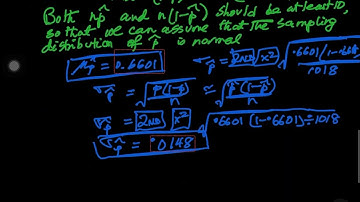 Both np̂ and n(1-p̂) should be at least 10,
so that we can assume that the sampling
distribution of p̂ is normal
μp̂ = 0.6601
σp̂ = 2ND x² √ .6601(1-.6601) / 1018
σp̂ = √ p(1-p) / n ≈ √ p̂(1-p̂) / n
σp̂ = 2ND x² √ .6601(1-.6601)÷1018
σp̂ = .0148